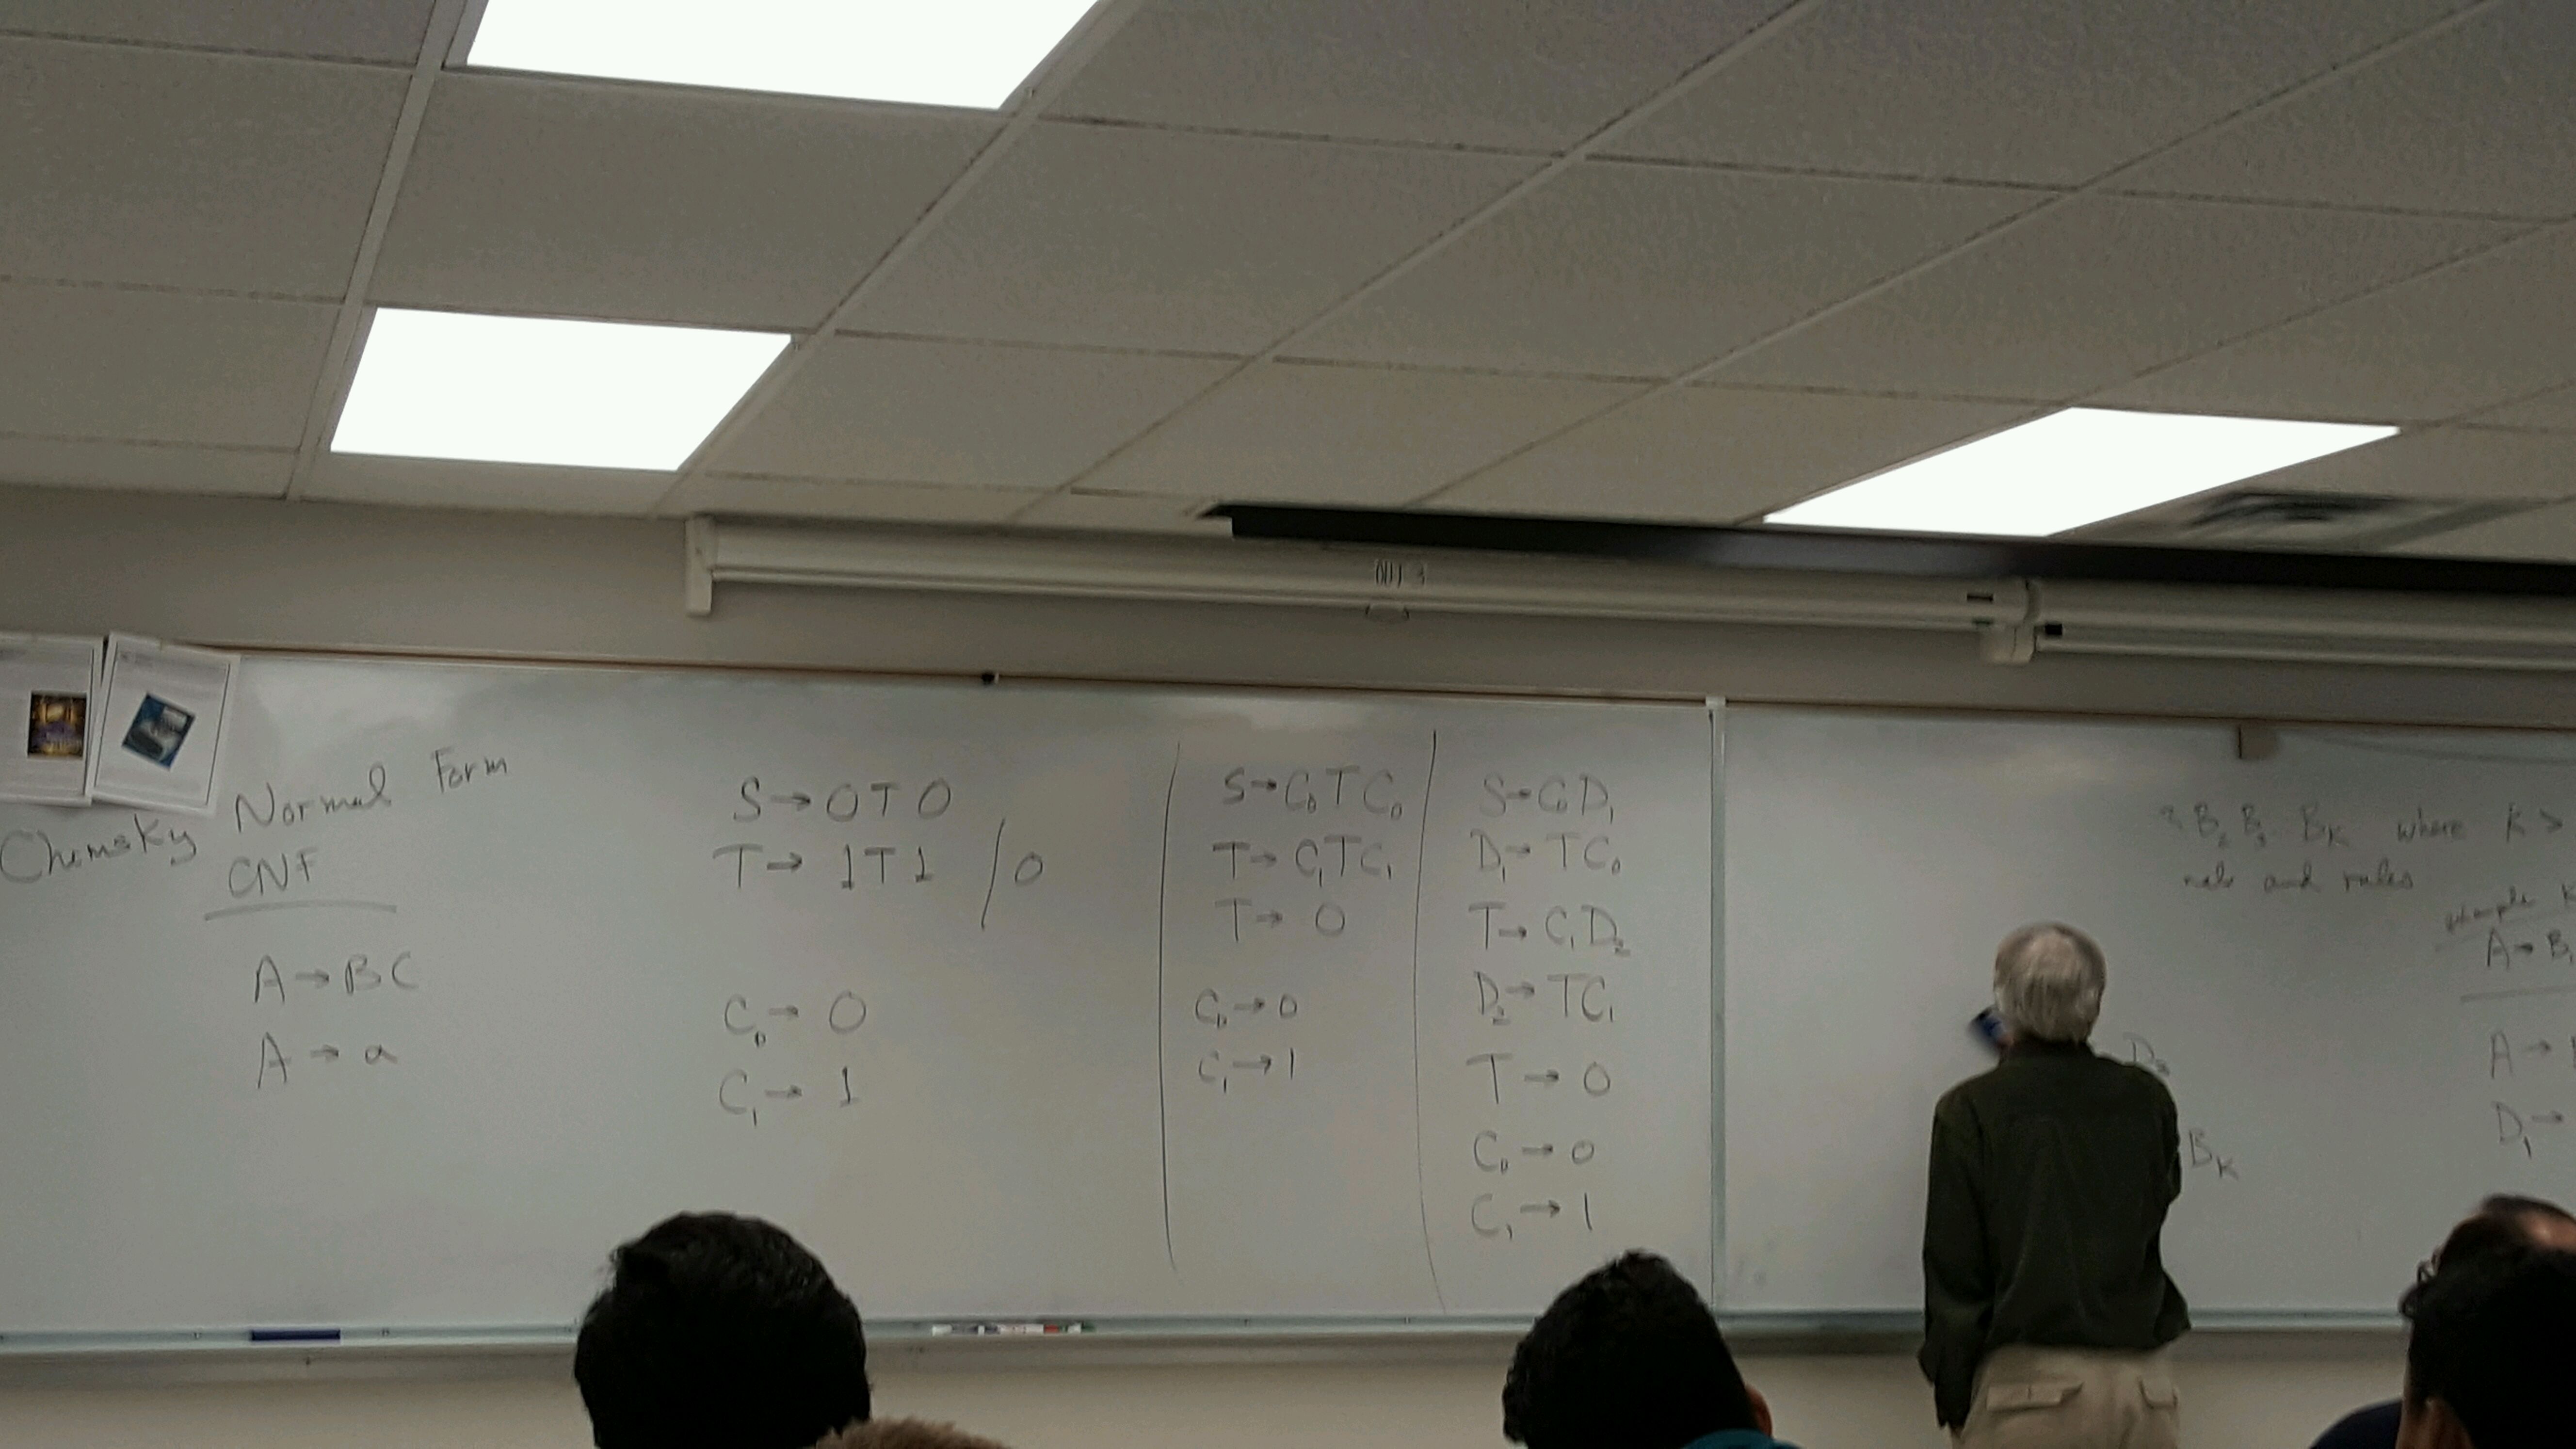 Chomsky Normal Form
CNF
A → BC
A → a
S → 0T0
T → 1T1 / 0
C₀ → 0
C₁ → 1
S → C₀TC₀
T → C₁TC₁
T → 0
C₀ → 0
C₁ → 1
S → C₀D₁
D₁ → TC₀
T → C₁D₂
D₂ → TC₁
T → 0
C₀ → 0
C₁ → 1
B₂ B₃ Bₖ where K >
and rules
A → B₁
A →
D₁ →
Bₖ